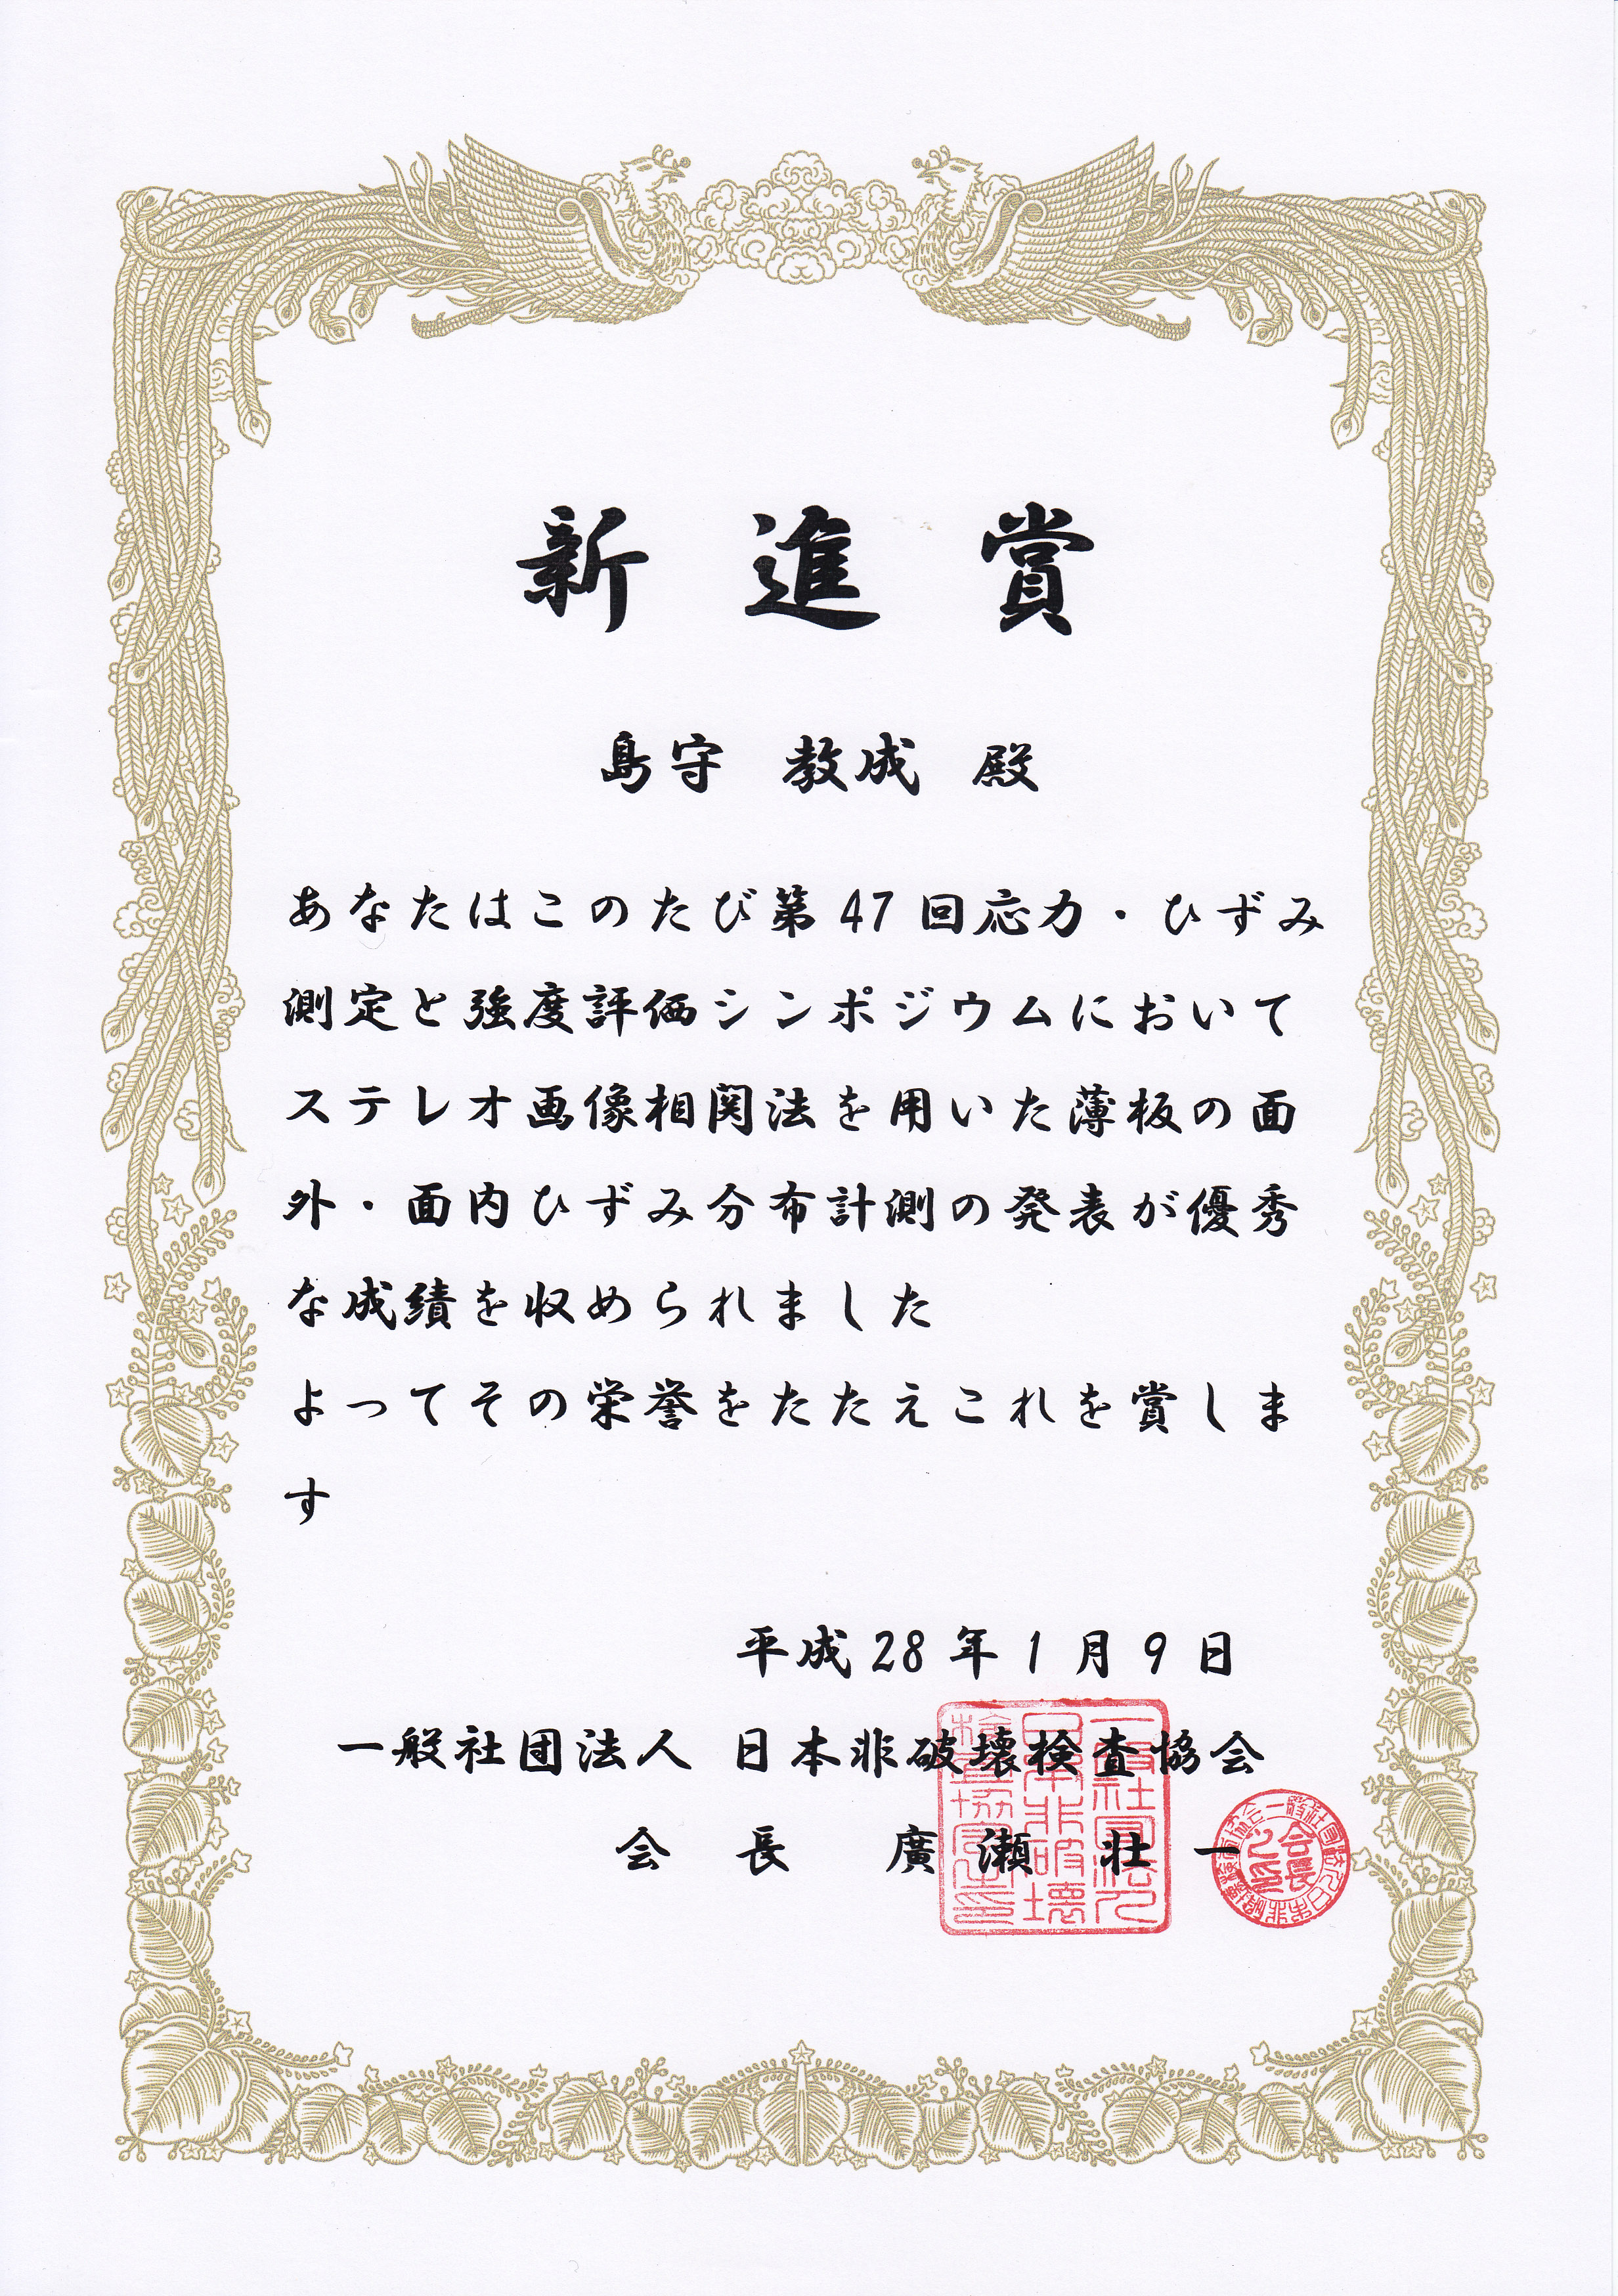 新進賞
島守 教成 殿
あなたはこのたび第47回応力・ひずみ
測定と強度評価シンポジウムにおいて
ステレオ画像相関法を用いた薄板の面
外・面内ひずみ分布計測の発表が優秀
な成績を収められました
よってその栄誉をたたえこれを賞しま
す
平成28年1月9日
一般社団法人 日本非破壊検査協会
会長 廣瀬 壮一